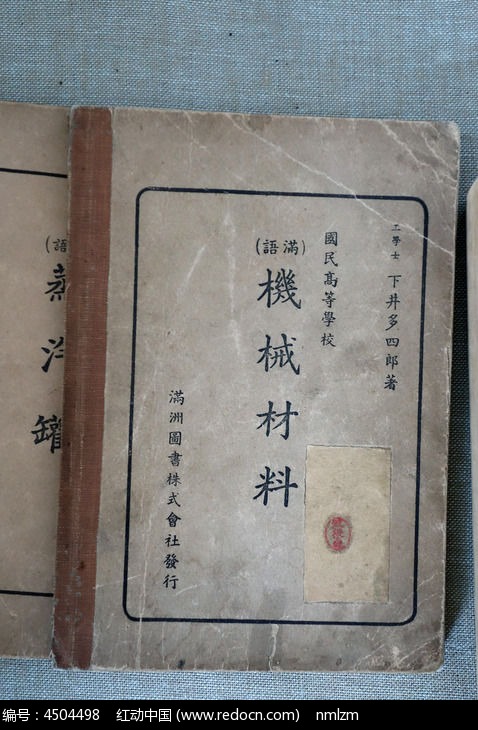 工學士 下井多四郎著
國民高等學校
(滿語)
機械材料
滿洲圖書株式會社發行
語)
蒸汽罐
编号：4504498 红动中国 (www.redocn.com) nmlzm